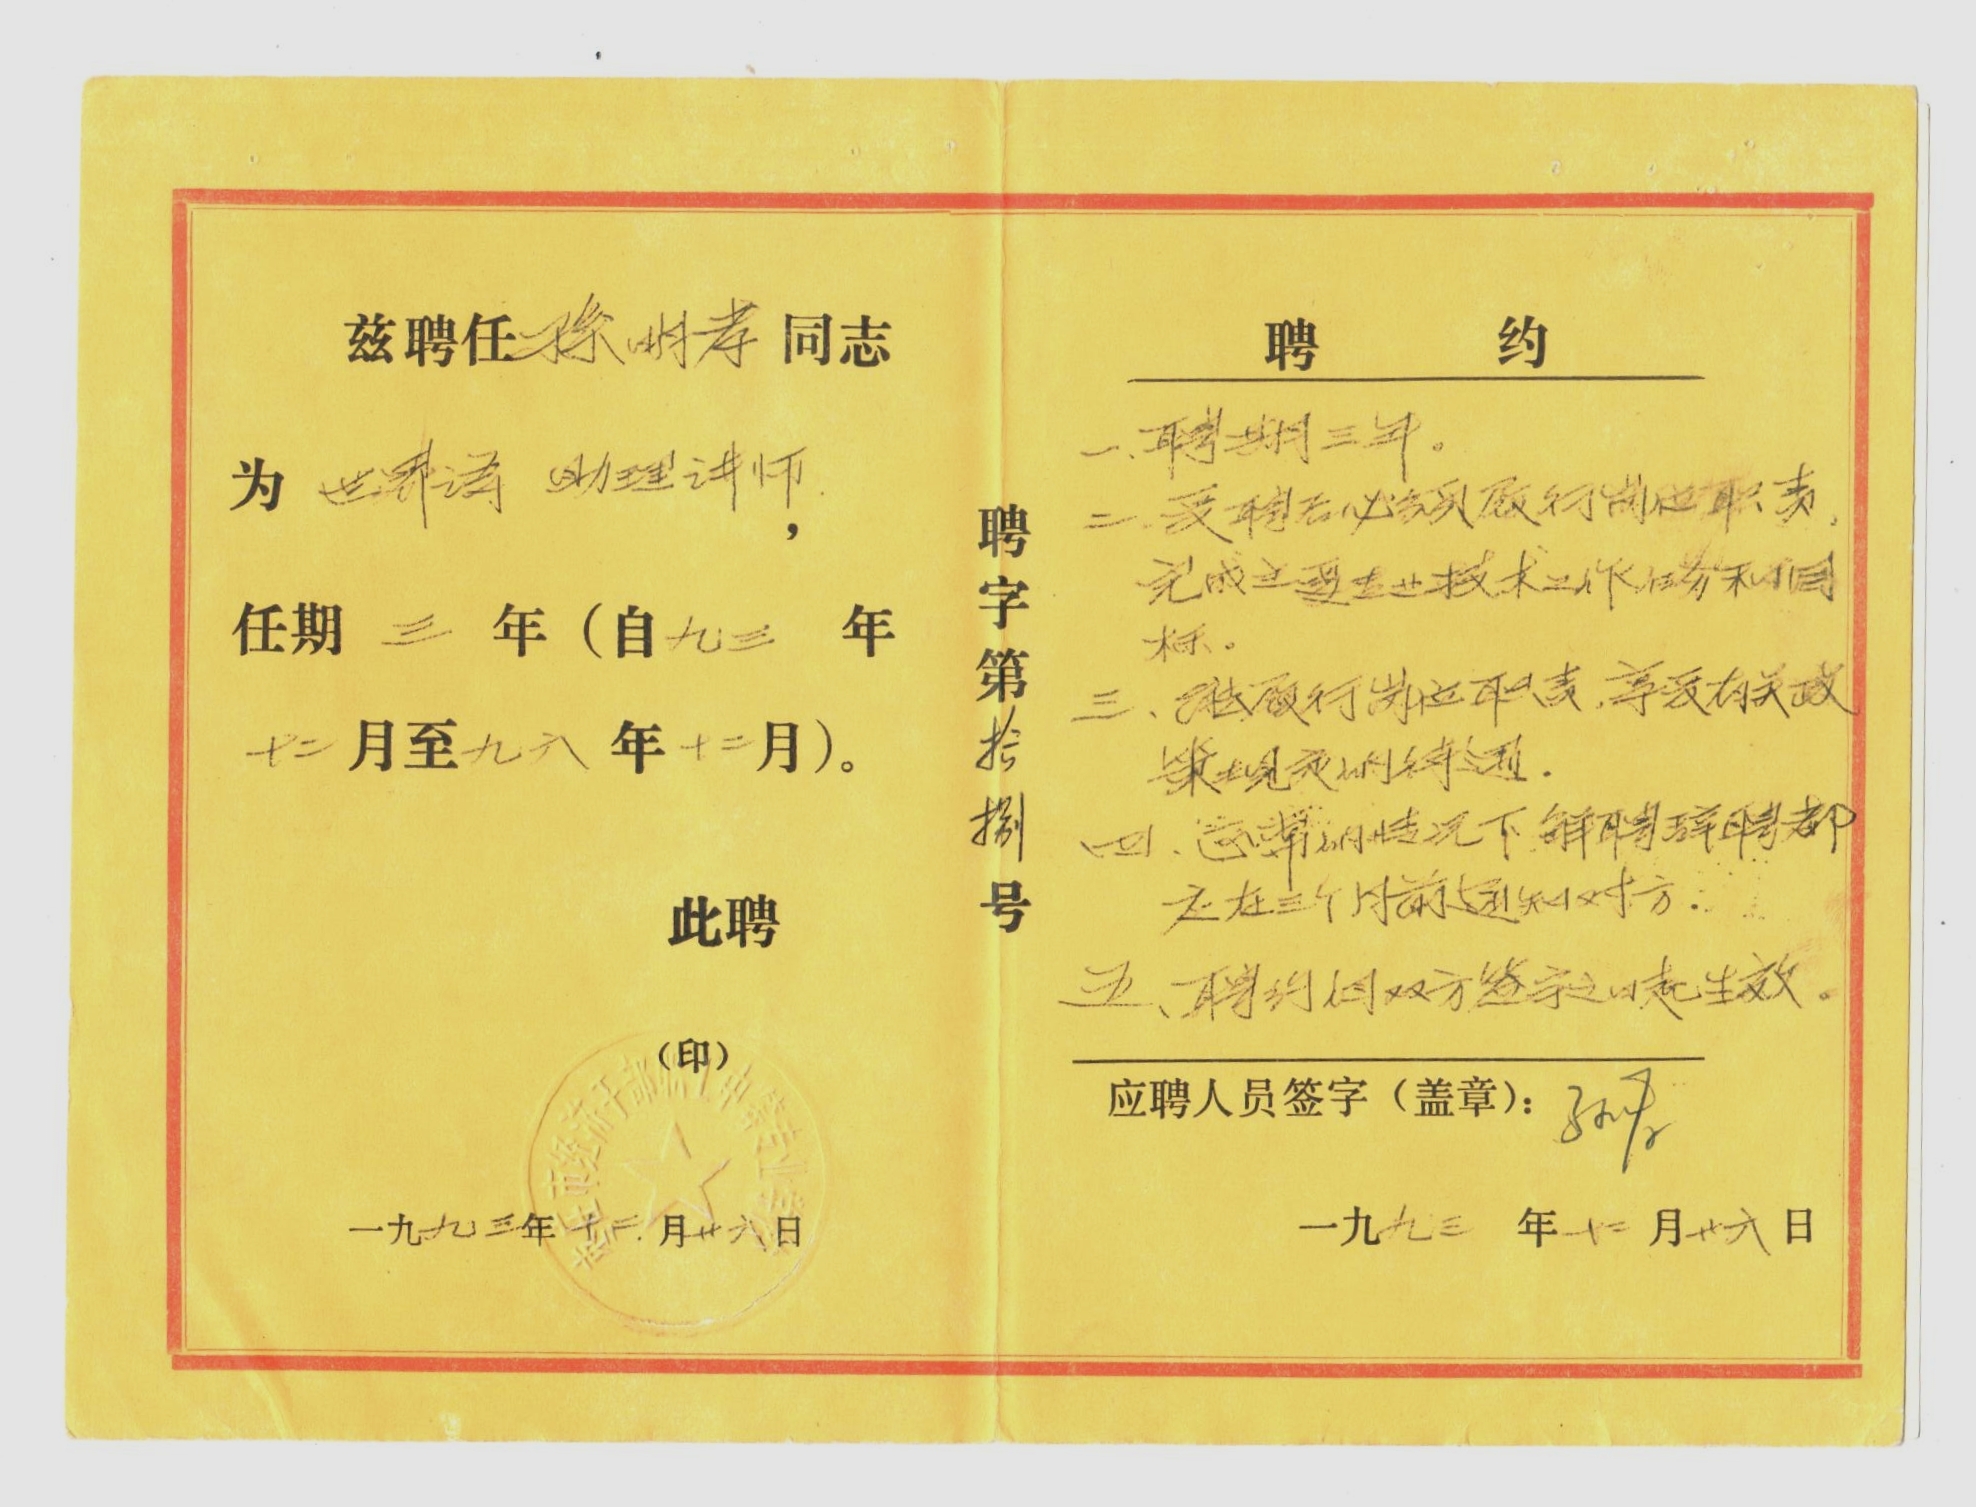 兹聘任孙明孝同志
为 世界语 助理讲师，
任期 三 年（自九三 年
十二月至九六 年十二月）。
此聘
（印）
一九九三年十二月廿六日
聘字第拾捌号
聘 约
一、聘期三年。
二、受聘后必须履行岗位职责，
完成主要专业技术工作任务和目
标。
三、履行岗位职责，享受有关政
策规定的待遇。
四、正常的情况下解聘辞聘都
应在三个月前通知对方。
五、聘约自双方签字之日起生效。
应聘人员签字（盖章）：
一九九三 年十二月廿六日
市经济干部 中等专业学校